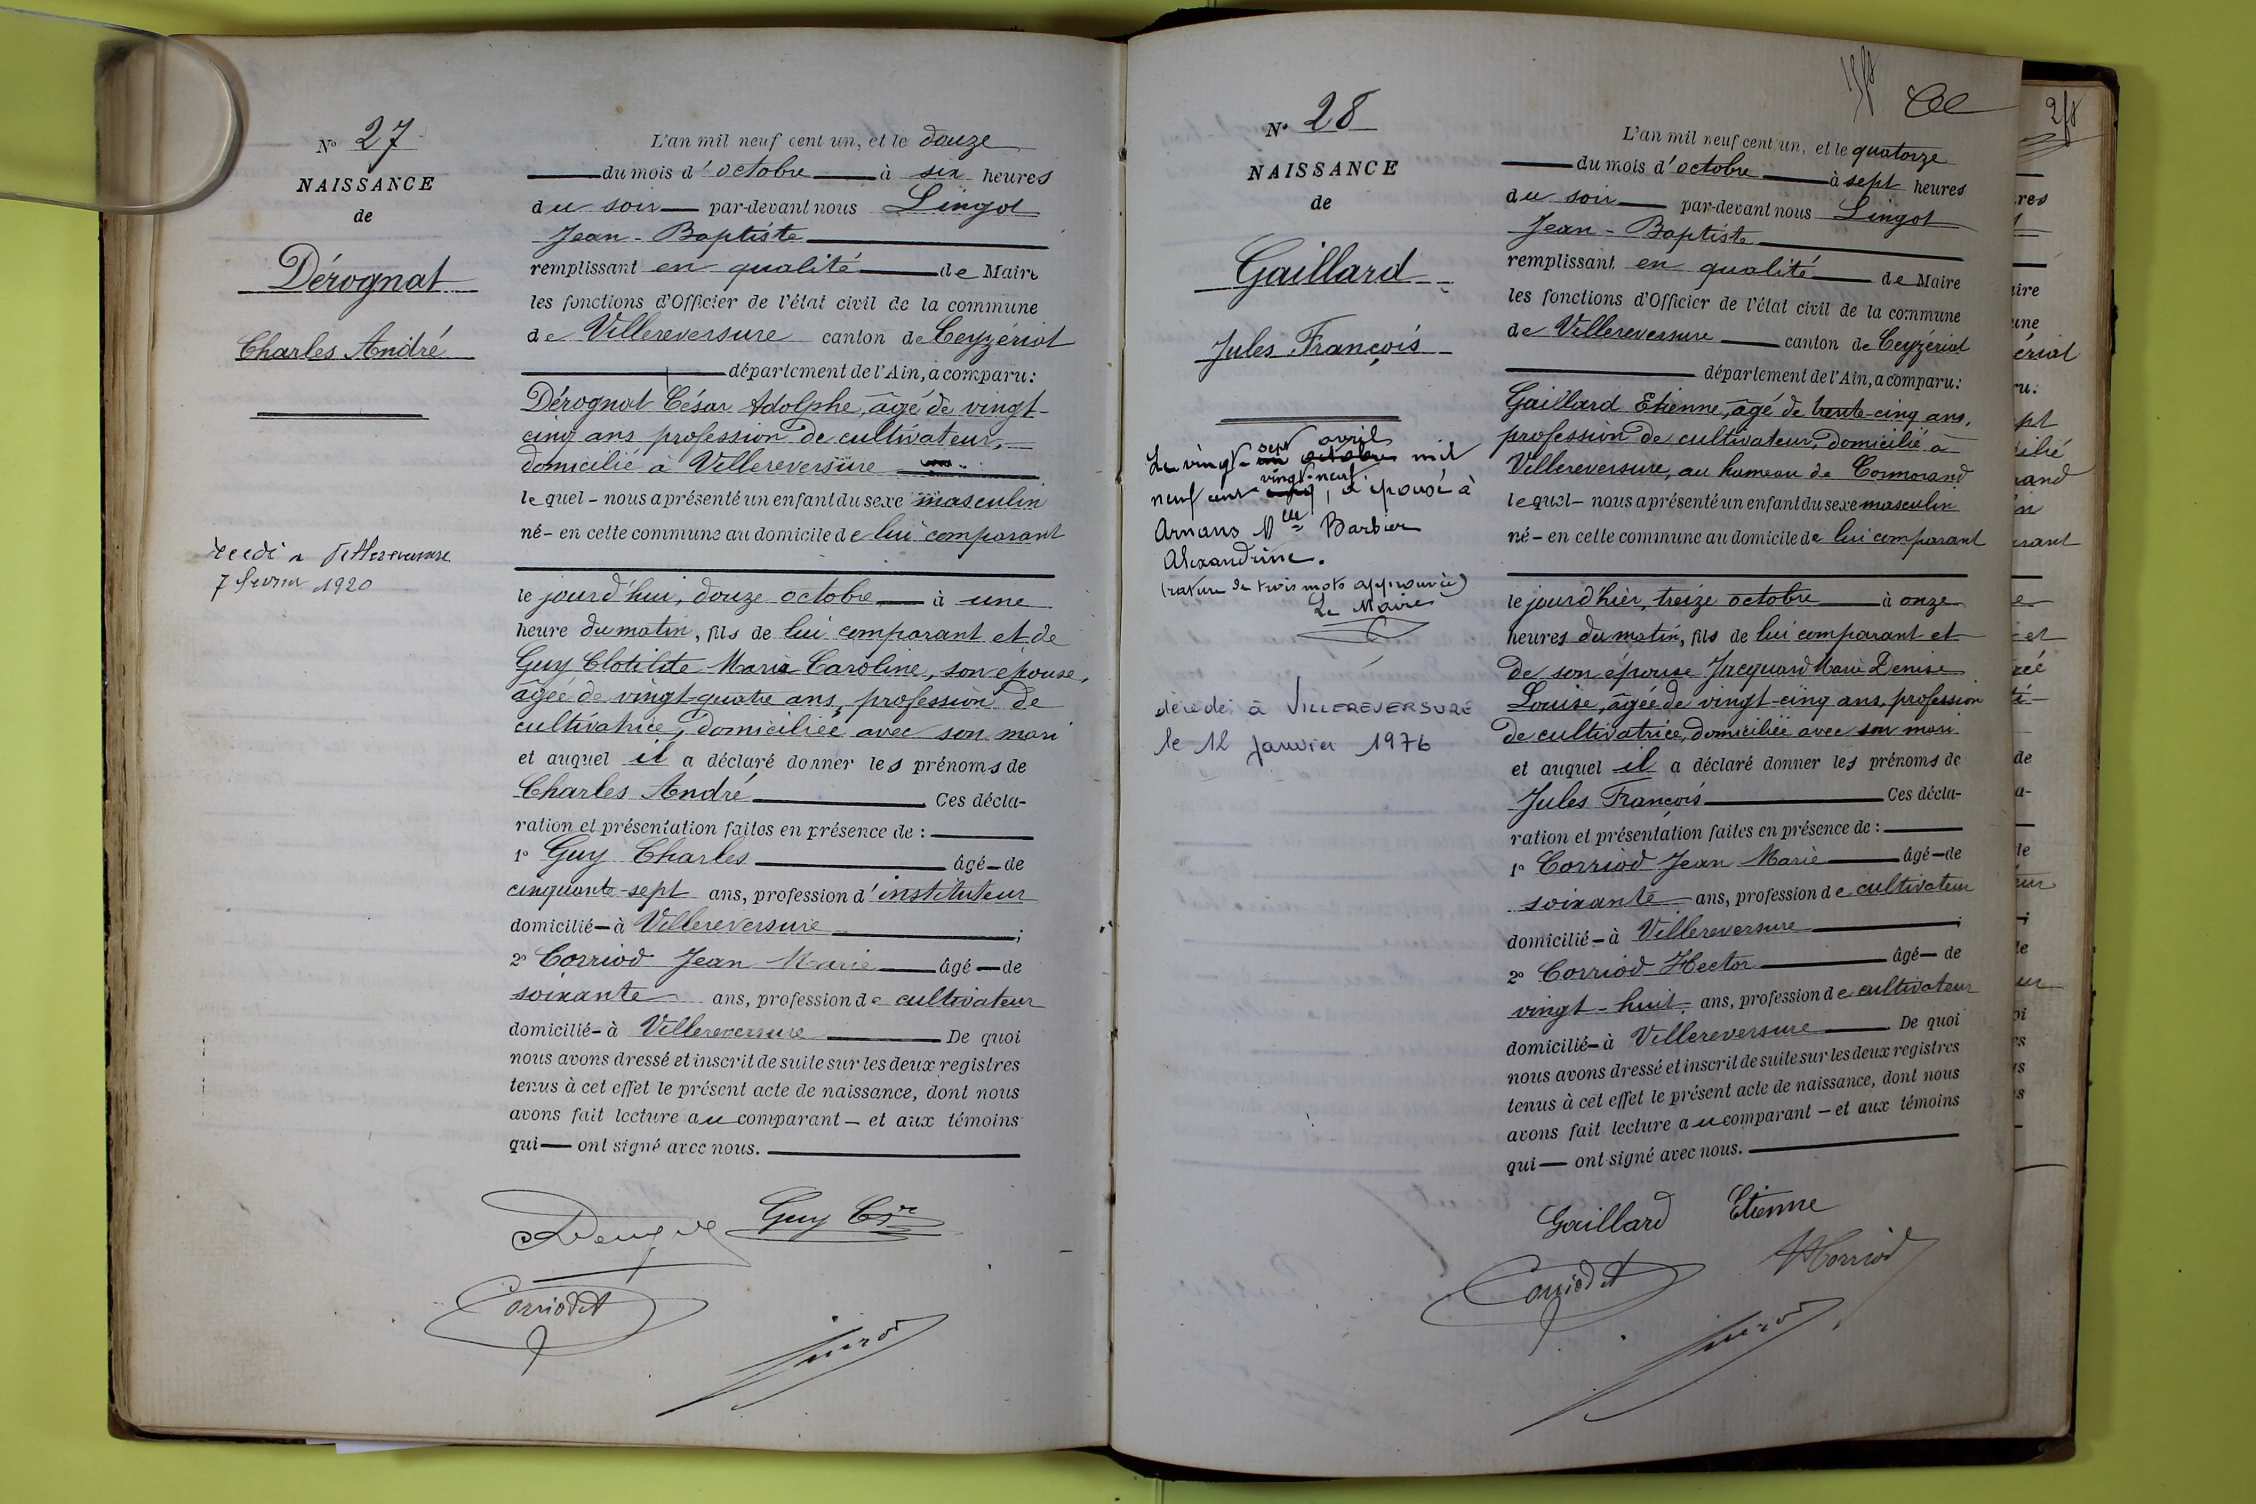 N° 27
NAISSANCE
de
Dérognat
Charles André
7 février 1920
L'an mil neuf cent un, et le douze
du mois d'octobre à six heures
du soir par-devant nous Lingot
Jean-Baptiste
remplissant en qualité de Maire
les fonctions d'Officier de l'état civil de la commune
de Villereversure canton de Ceyzériat
département de l'Ain, a comparu:
Dérognat César Adolphe, âgé de vingt-
cinq ans profession de cultivateur,
domicilié à Villereversure
lequel - nous a présenté un enfant du sexe masculin
né - en cette commune au domicile de lui comparant
le jourd'hui, douze octobre à une
heure du matin, fils de lui comparant et de
Guy Clotilde Marie Caroline, son épouse,
âgée de vingt-quatre ans, profession de
cultivatrice, domiciliée avec son mari
et auquel il a déclaré donner les prénoms de
Charles André Ces décla-
ration et présentation faites en présence de :
1° Guy Charles âgé - de
cinquante-sept ans, profession d'instituteur
domicilié - à Villereversure ;
2° Corriod Jean Marie âgé - de
soixante ans, profession de cultivateur
domicilié - à Villereversure De quoi
nous avons dressé et inscrit de suite sur les deux registres
tenus à cet effet le présent acte de naissance, dont nous
avons fait lecture au comparant - et aux témoins
qui - ont signé avec nous.
Guy
N° 28
NAISSANCE
de
Gaillard
Jules François
sept avril
Le vingt-un octobre mil
vingt-neuf
neuf cent, a épousé à
Arnans Mlle Barbier
Alexandrine.
(rature de trois mots approuvée)
Le Maire
décédé à VILLEREVERSURE
le 12 janvier 1976
L'an mil neuf cent un, et le quatorze
du mois d'octobre à sept heures
du soir par-devant nous Lingot
Jean-Baptiste
remplissant en qualité de Maire
les fonctions d'Officier de l'état civil de la commune
de Villereversure canton de Ceyzériat
département de l'Ain, a comparu:
Gaillard Etienne, âgé de trente-cinq ans,
profession de cultivateur, domicilié à
Villereversure, au hameau de Cormorand
lequel - nous a présenté un enfant du sexe masculin
né - en cette commune au domicile de lui comparant
le jourd'hier, treize octobre à onze
heures du matin, fils de lui comparant et
de son épouse Jacquard Marie Denise
Louise, âgée de vingt-cinq ans, profession
de cultivatrice, domiciliée avec son mari
et auquel il a déclaré donner les prénoms de
Jules François Ces décla-
ration et présentation faites en présence de :
1° Corriod Jean Marie âgé - de
soixante ans, profession de cultivateur
domicilié - à Villereversure ;
2° Corriod Hector âgé - de
vingt-huit ans, profession de cultivateur
domicilié - à Villereversure De quoi
nous avons dressé et inscrit de suite sur les deux registres
tenus à cet effet le présent acte de naissance, dont nous
avons fait lecture au comparant - et aux témoins
qui - ont signé avec nous.
Gaillard Etienne